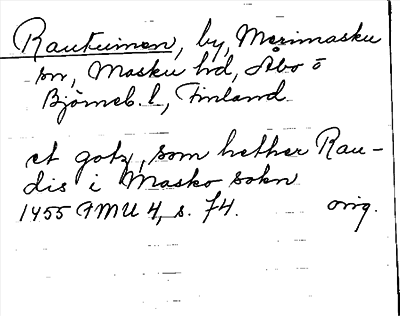 Rautuinen, by, Merimasku
sn, Masku hd, Åbo o
Björneb. l., Finland.
et gotz, som hether Rau-
dis i Masko sokn
1455 FMU 4, s. 74. orig.